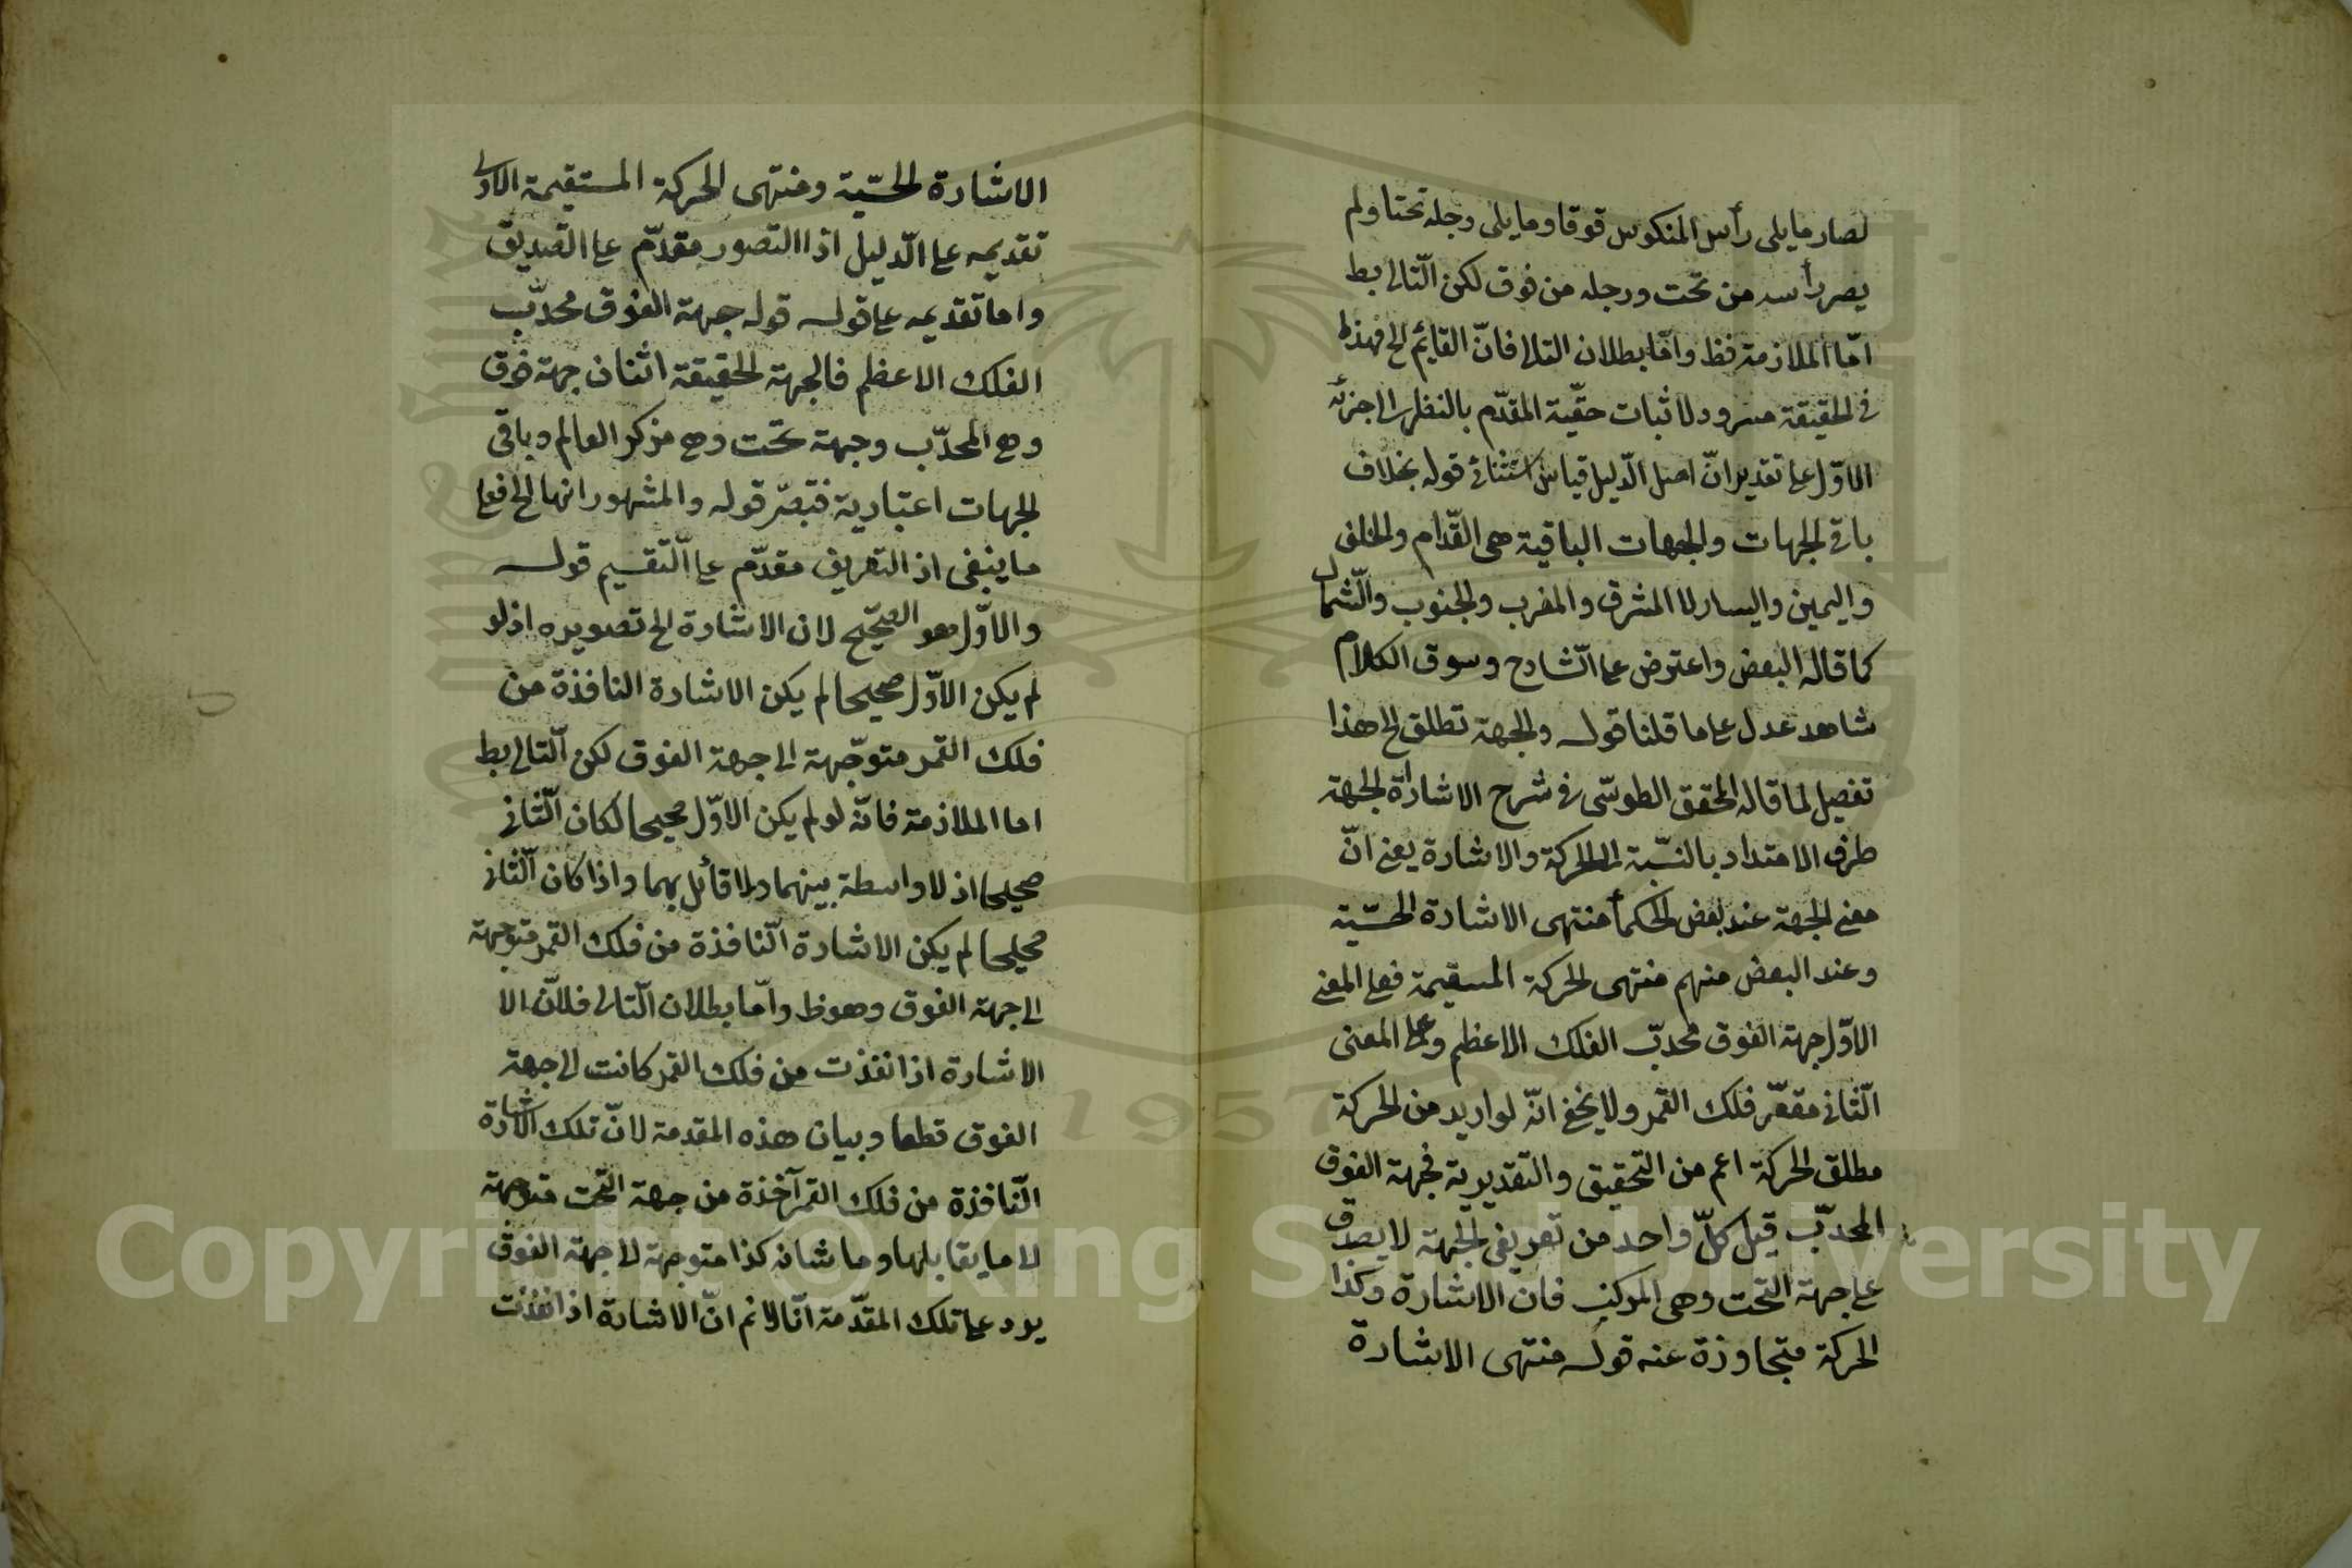 لصار مايلى رأس المنكوس فوقا ومايلى رجله تحتا ولم
يصر رأسه من تحت ورجله من فوق لكن التّالى بط
امّا الملازمة فظ وامّا بطلان التالى فانّ القايم الخ فهذا
فى الحقيقة مسرود لاثبات حقّية المقدّم بالنظر الى جزئه
الاوّل على تقدير انّ اصل الدّليل قياس استثنائى قوله بخلاف
باقى الجهات والجهات الباقية هى القدّام والخلف
واليمين واليسار لا المشرق والمغرب والجنوب والشّمال
كما قاله البعض واعترض على الشّارح وسوق الكلام
شاهد عدل على ما قلنا قوله والجهة تطلق الخ هذا
تفصيل لما قاله المحقق الطوسّى فى شرح الاشارات الجهة
طرف الامتداد بالنسّبة الى الحركة والاشارة يعنى انّ
معنى الجهة عند بعض الحكمأ منتهى الاشارة الحسّية
وعند البعض منهم منتهى الحركة المسقيمة فعلى المعنى
الاوّل جهة الفوق محدبّ الفلك الاعظم وعلى المعنى
الثّانى مقعّر فلك القمر ولا يخفى انّه لو اريد من الحركة
مطلق الحركة اعم من التحقيق والتقديرية فجهة الفوق
المحدبّ قيل كلّ واحد من تعريفى الجهة لا يصدق
على جهة التحت وهى المركز فان الاشارة وكذا
الحركة متجاوزة عنه قوله منتهى الاشارة
الاشارة الحسّية ومنتهى الحركة المستقيمة الاولى
تقديمه على الدّليل اذا التصور مقدّم على التصديق
واما تقديمه على قوله قوله جهة الفوق محدّب
الفلك الاعظم فالجهة الحقيقة اثنان جهة فوق
وهى المحدّب وجهة تحت وهى مركز العالم وباقى
الجهات اعتبارية فتبصّر قوله والمشهور انها الخ فعلى
ما ينبغى اذ التعريف مقدّم على التّقسيم قوله
والاوّل هو الصّحيح لان الاشارة الخ تصويره اذ لو
لم يكن الاوّل صحيحا لم يكن الاشارة النافذة من
فلك القمر متوجّهة الى جهة الفوق لكن التّالى بط
اما الملازمة فانّه لو لم يكن الاوّل صحيحا لكان الثّانى
صحيحا اذ لا واسطة بينهما ولا قائل بهما واذا كان الثّانى
صحيحا لم يكن الاشارة النّافذة من فلك القمر متوجهة
الى جهة الفوق وهو ظ وامّا بطلان التّالى فلانّ الا
الاشارة اذا نفذت من فلك القمر كانت الى جهة
الفوق قطعا وبيان هذه المقدمة لانّ تلك الاشارة
النّافذة من فلك القمر آخذة من جهة التحت متوجهة
لا ما يقابلها وما شانه كذا متوجهة لا جهة الفوق
يرد على تلك المقدّمة انّا لا نم انّ الاشارة اذا نفذت
Copyright © King Saud University
1957